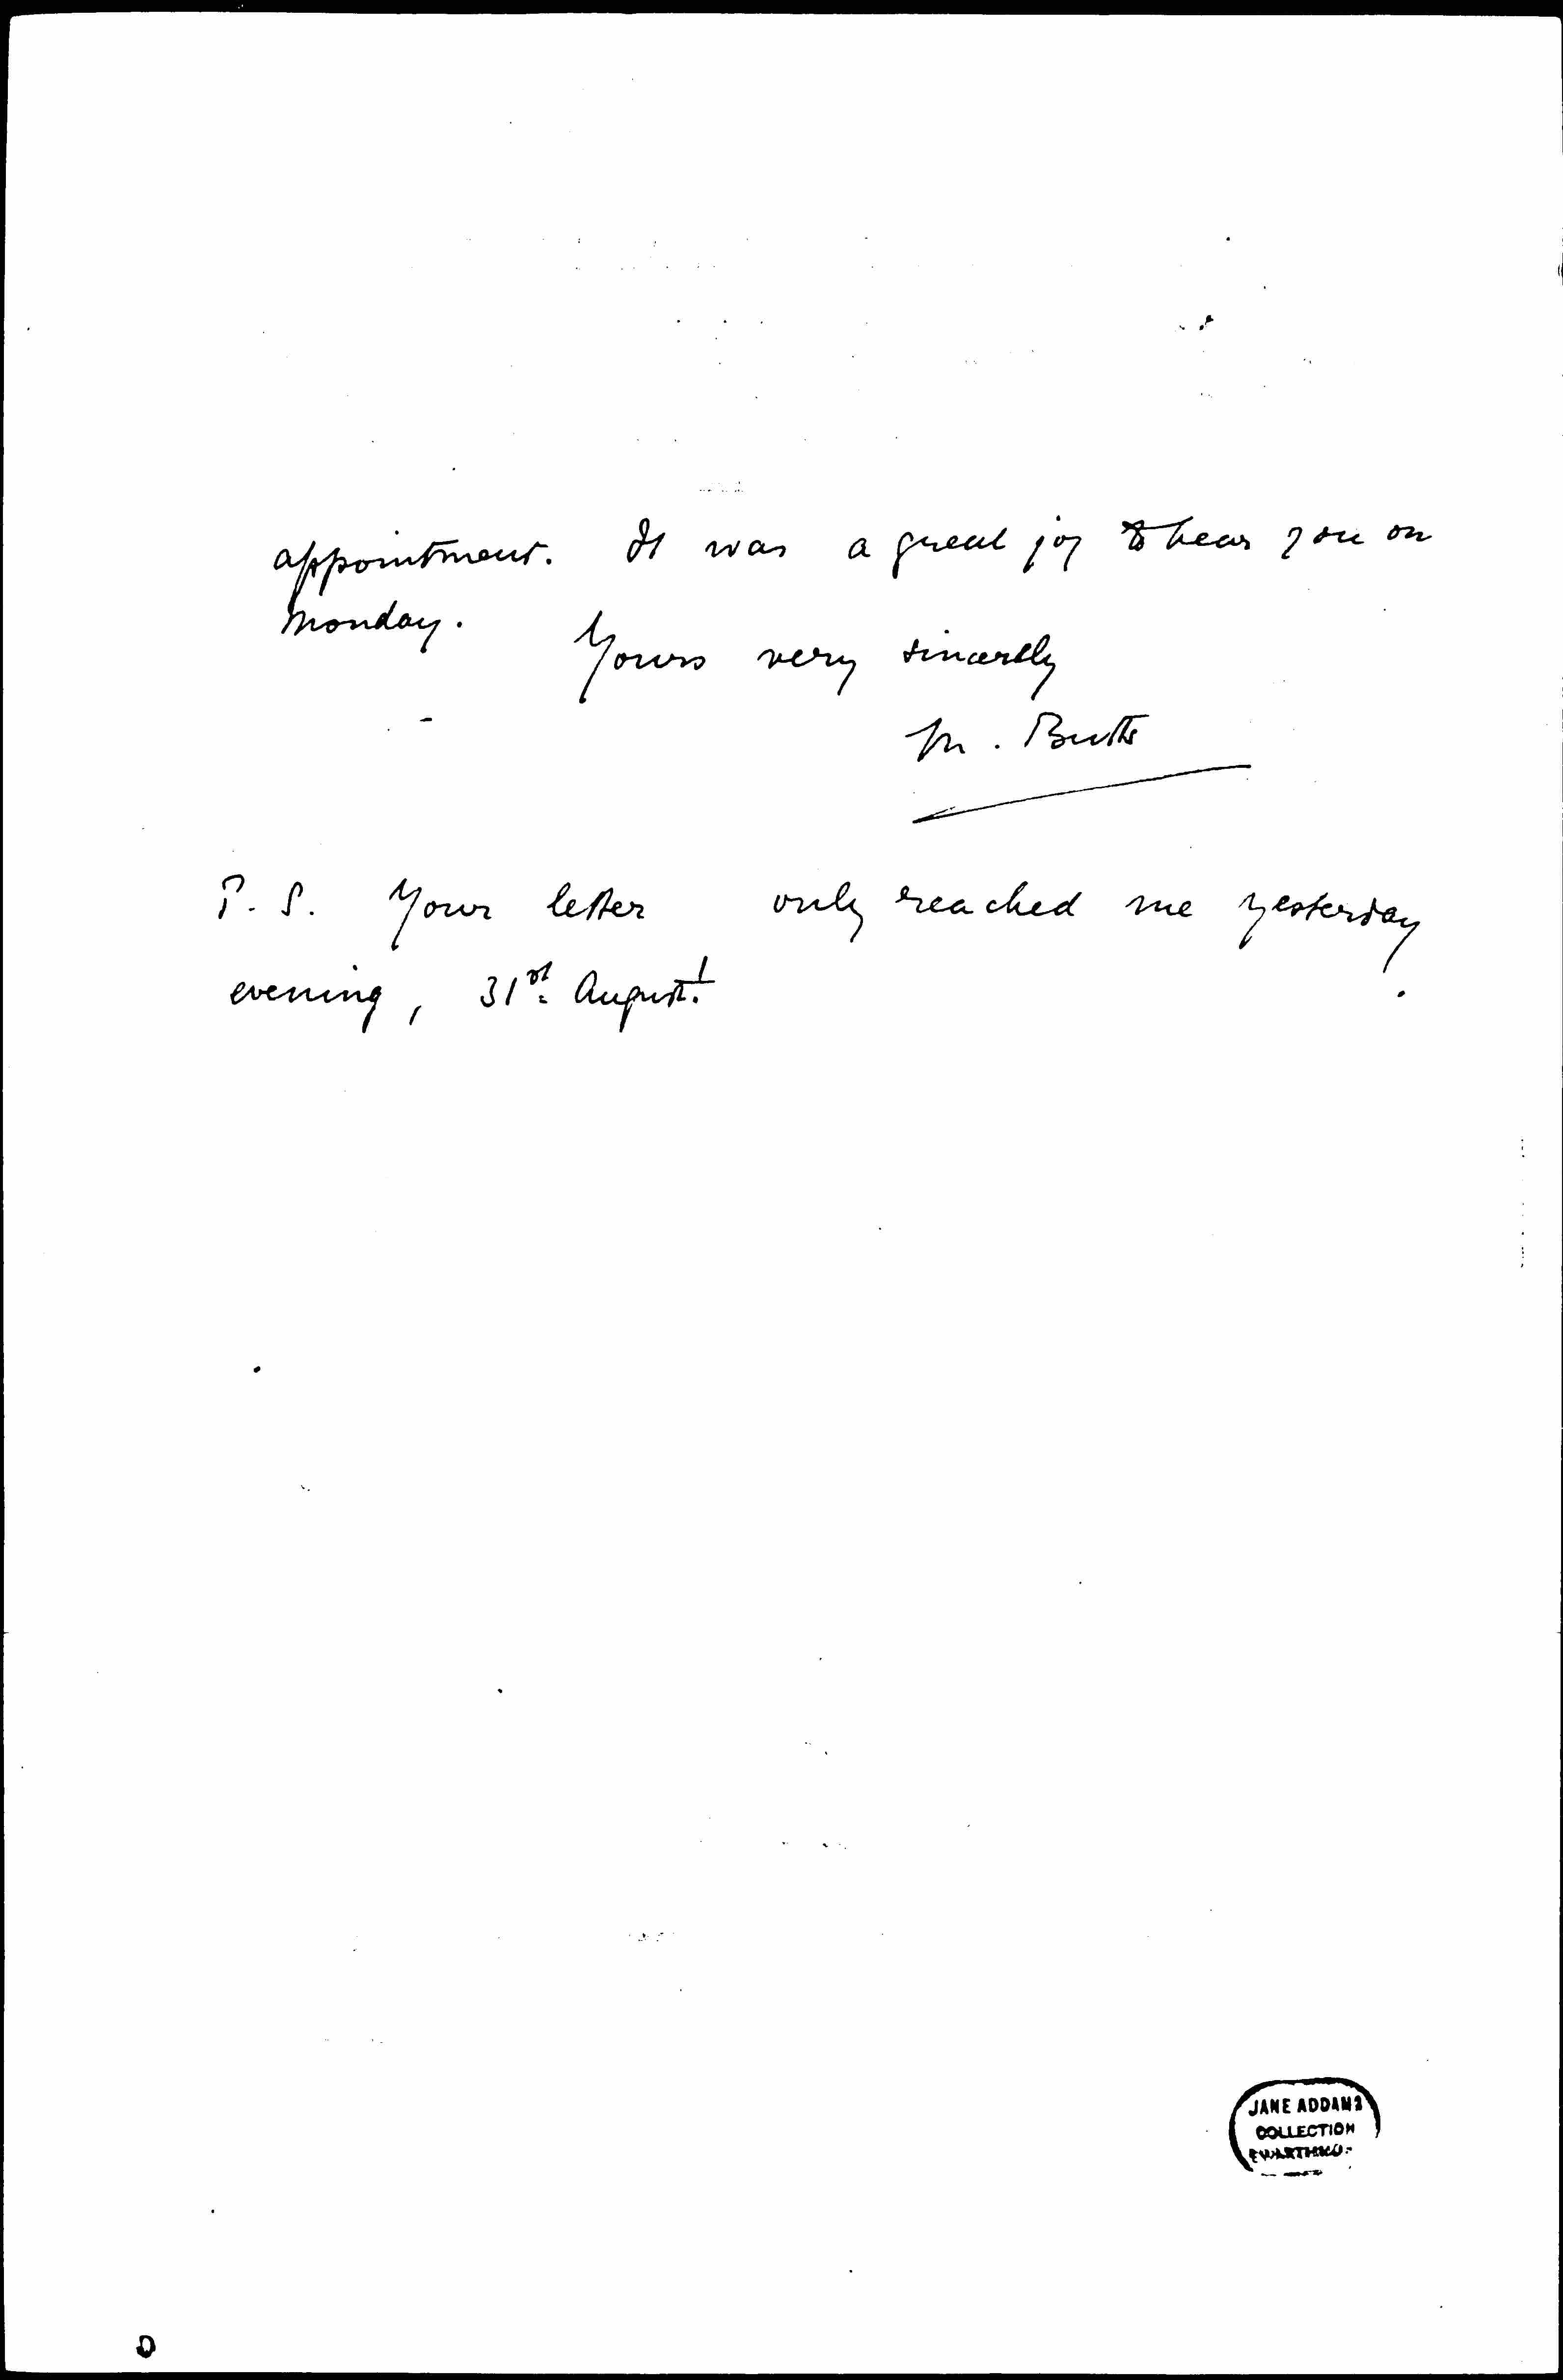 appointment. It was a great joy to hear you on
Monday.
Yours very sincerely
M. Butts
P.S. Your letter only reached me yesterday
evening, 31st August!
JANE ADDAMS
COLLECTION